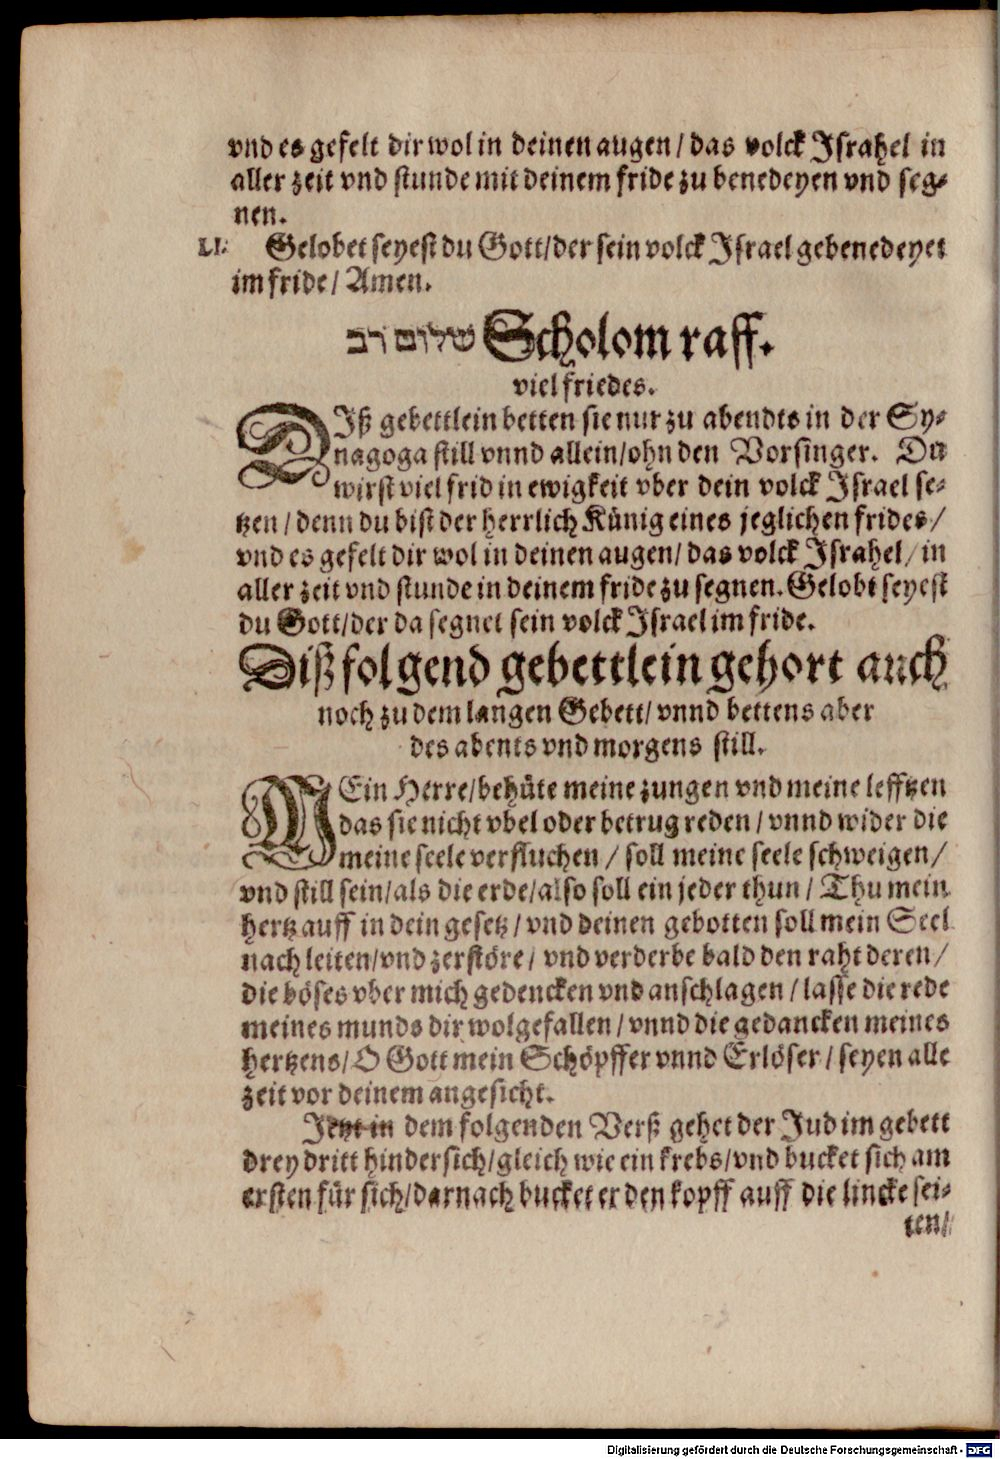 vnd es gefelt dir wol in deinen augen / das volck Jsrahel in
aller zeit vnd stunde mit deinem fride zu benedeyen vnd seg⸗
nen.
LI. Gelobet seyest du Gott/der sein volck Jsrael gebenedeyet
im fride / Amen.
שלום רב Scholom raff.
viel friedes.
DIß gebettlein betten sie nur zu abendts in der Sy⸗
nagoga still vnnd allein/ohn den Vorsinger. Du
wirst viel frid in ewigkeit vber dein volck Jsrael se⸗
tzen / denn du bist der herrlich Künig eines jeglichen frides/
vnd es gefelt dir wol in deinen augen/ das volck Jsrahel/ in
aller zeit vnd stunde in deinem fride zu segnen. Gelobt seyest
du Gott/der da segnet sein volck Jsrael im fride.
Diß folgend gebettlein gehort auch
noch zu dem langen Gebett/ vnnd bettens aber
des abents vnd morgens still.
MEin Herre/behüte meine zungen vnd meine lefftzen
das sie nicht vbel oder betrug reden / vnnd wider die
meine seele verfluchen / soll meine seele schweigen/
vnd still sein/als die erde/also soll ein jeder thun / Thu mein
hertz auff in dein gesetz / vnd deinen gebotten soll mein Seel
nach leiten/vnd zerstöre / vnd verderbe bald den raht deren/
die böses vber mich gedencken vnd anschlagen / lasse die rede
meines munds dir wolgefallen / vnnd die gedancken meines
hertzens/ O Gott mein Schöpffer vnnd Erlöser / seyen alle
zeit vor deinem angesicht.
Jetzt in dem folgenden Verß gehet der Jud im gebett
drey dritt hindersich/gleich wie ein krebs/vnd bucket sich am
ersten für sich/darnach bucket er den kopff auff die lincke sei⸗
ten/
Digitalisierung gefördert durch die Deutsche Forschungsgemeinschaft - DFG